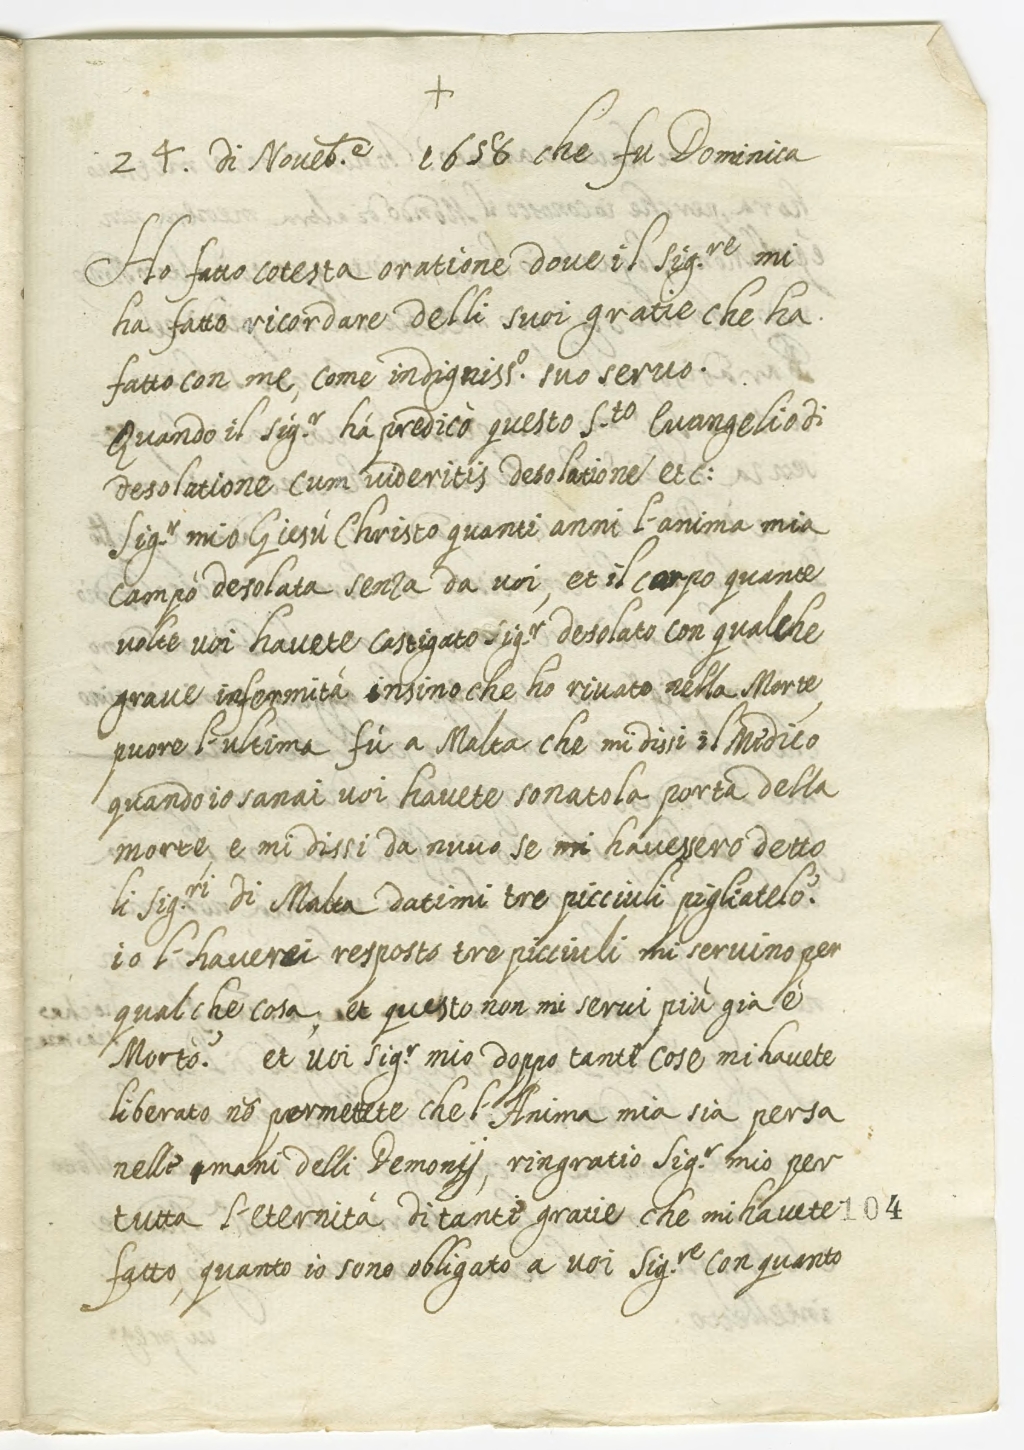 +
24. di Noueb.e 1658 che fu Dominica
Ho fatto cotesta oratione doue il Sig.re mi
ha fatto ricordare delli suoi gratie che ha
fatto con me, come indigniss.o suo seruo.
Quando il Sig.r há predicò questo S.to Euangelio di
desolatione cum uideritis desolatione etc:
Sig.r mio Giesú Christo quanti anni l'anima mia
campò desolata senza da uoi, et il corpo quante
uolte uoi hauete castigato Sig.r desolato con qualche
graue infermità insino che ho riuato nella Morte,
puore l'ultima fú a Malta che mi dissi il Medico
quando io sanai uoi hauete sonato la porta della
morte, e mi dissi da nuuo se mi hauessero detto
li Sig.ri di Malta datimi tre picciuli pigliatelo?
io l'hauerei resposto tre picciuli mi seruino per
qualche cosa, et questo non mi serui più gia è
Morto? et uoi Sig.r mio doppo tanti cose mi hauete
liberato nõ permetete che l'Anima mia sia persa
nelle mani delli Demonij, ringratio Sig.r mio per
tutta l'eternità di tanti gratie che mi hauete
104
fatto, quanto io sono obligato a uoi Sig.re con quanto